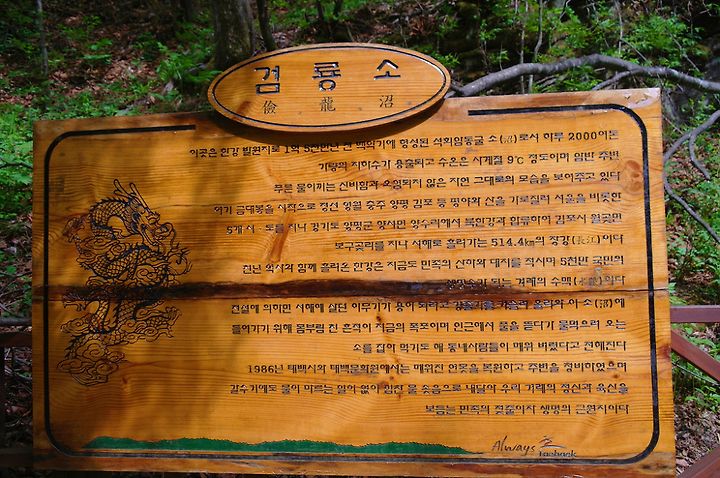 검룡소
儉龍沼
이곳은 한강 발원지로 1억 5천만년 전 백악기에 형성된 석회암동굴 소(沼)로서 하루 2000여톤
가량의 지하수가 용출되고 수온은 사계절 9℃ 정도이며 암반 주변
푸른 물이끼는 신비함과 오염되지 않은 자연 그대로의 모습을 보여주고 있다
여기 금대봉을 시작으로 정선 영월 충주 양평 김포 등 평야와 산을 가로질러 서울을 비롯한
5개 시·도를 지나 경기도 양평군 양서면 양수리에서 북한강과 합류하여 김포시 월곶면
보구곶리를 지나 서해로 흘러가는 514.4km의 장강(長江)이다
천년 역사와 함께 흘러온 한강은 지금도 민족의 산하와 대지를 적시며 5천만 국민의
생명수가 되는 겨레의 수맥(水脈)이다
전설에 의하면 서해에 살던 이무기가 용이 되려고 강줄기를 거슬러 올라와 이 소(沼)에
들어가기 위해 몸부림 친 흔적이 지금의 폭포이며 인근에서 물을 뜯다가 물먹으러 오는
소를 잡아 먹기도 해 동네사람들이 메워 버렸다고 전해진다
1986년 태백시와 태백문화원에서는 메워진 연못을 복원하고 주변을 정비하였으며
갈수기에도 물이 마르는 일이 없이 힘찬 물 솟음으로 내달아 우리 겨레의 정신과 육신을
보듬는 민족의 젖줄이자 생명의 근원지이다
Always
Taebaek